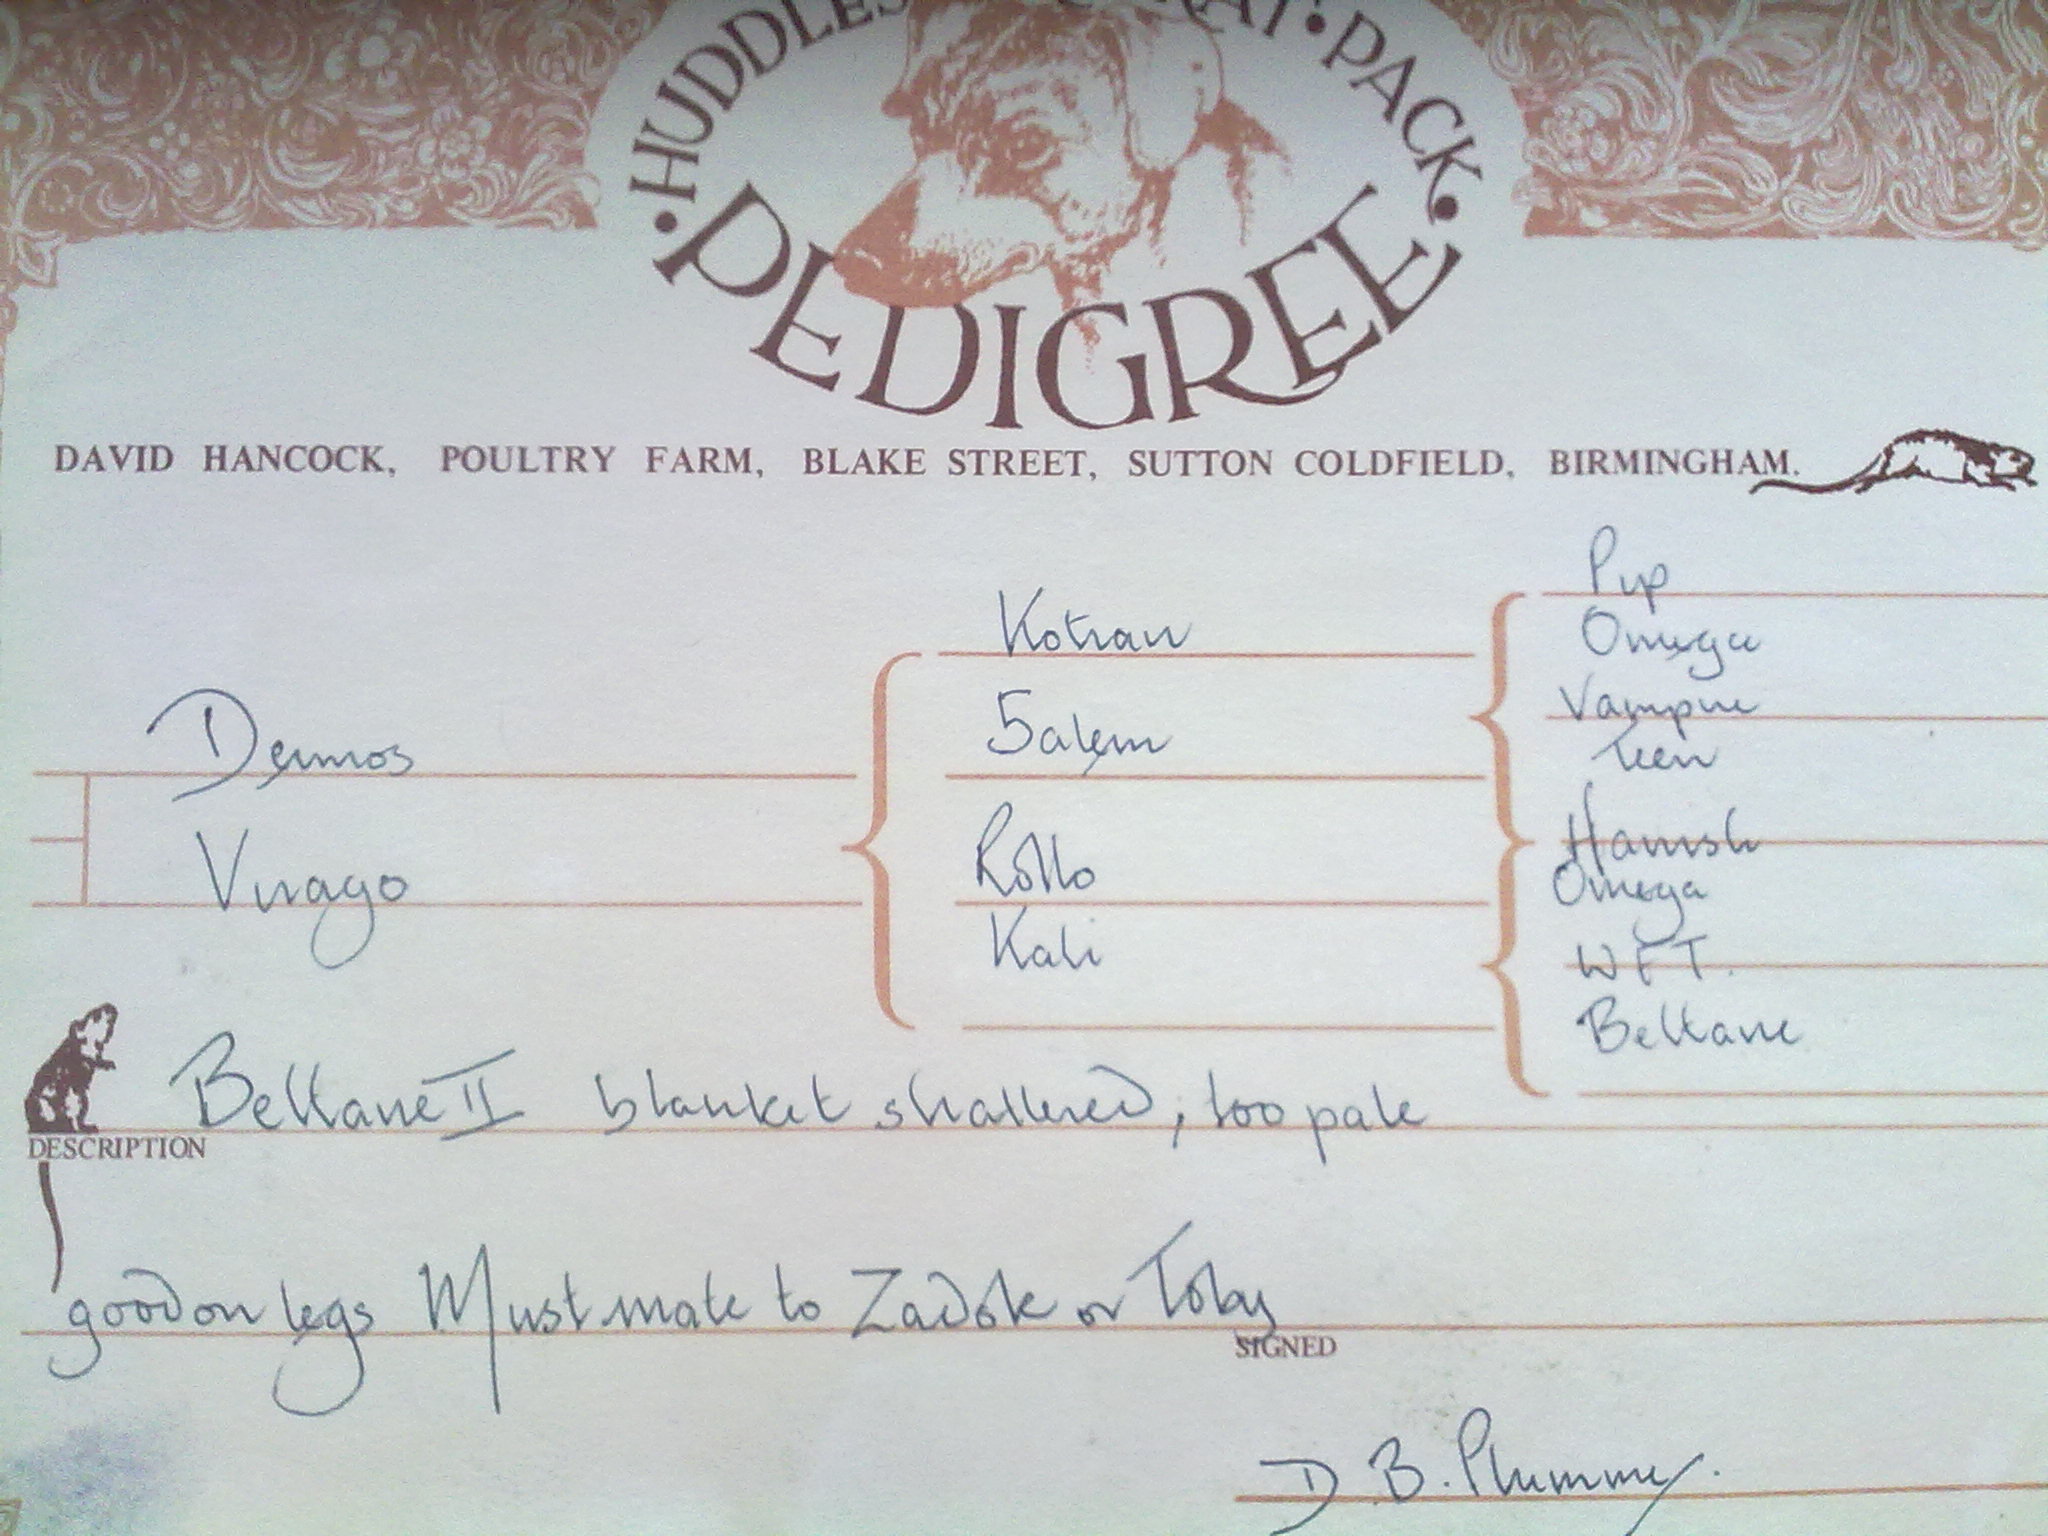 • HUDDLES RAT • PACK •
PEDIGREE
DAVID HANCOCK, POULTRY FARM, BLAKE STREET, SUTTON COLDFIELD, BIRMINGHAM.
Pip
Kotian
Omega
Vampire
Salem
Teen
Deimos
Hamish
Rollo
Omega
Virago
Kali
W F T.
Beltane
Beltane II blanket shattered, too pale
DESCRIPTION
good on legs Must mate to Zadok or Toby
SIGNED
D. B. Plummer.